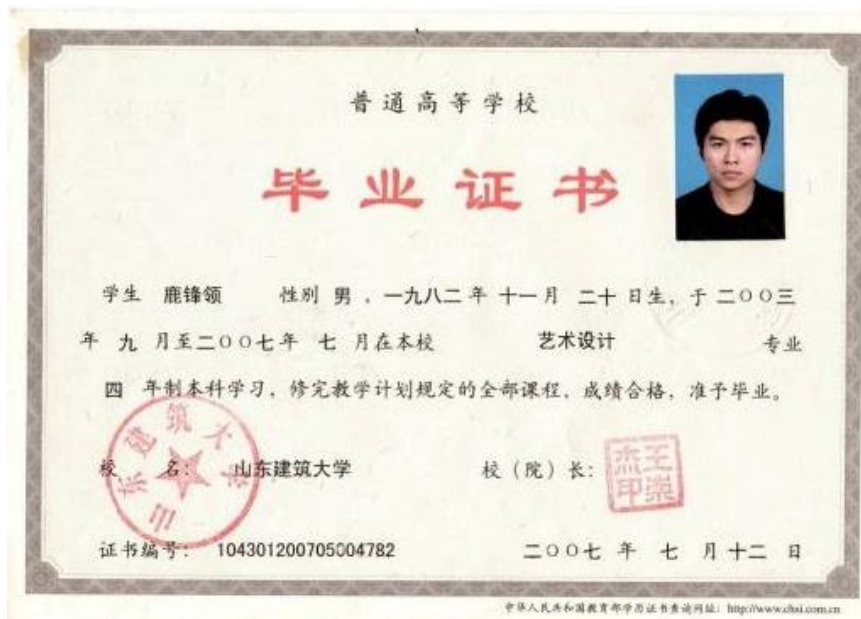 普通高等学校
毕业证书
学生 鹿锋领 性别 男 ，一九八二 年 十一 月 二十 日生，于 二〇〇三
年 九 月至 二〇〇七 年 七 月在本校 艺术设计 专业
四 年制本科学习，修完教学计划规定的全部课程，成绩合格，准予毕业。
山东建筑大学
校 名： 山东建筑大学 校（院）长： 王崇杰印
证书编号： 104301200705004782 二〇〇七 年 七 月 十二 日
中华人民共和国教育部学历证书查询网址：http://www.chsi.com.cn